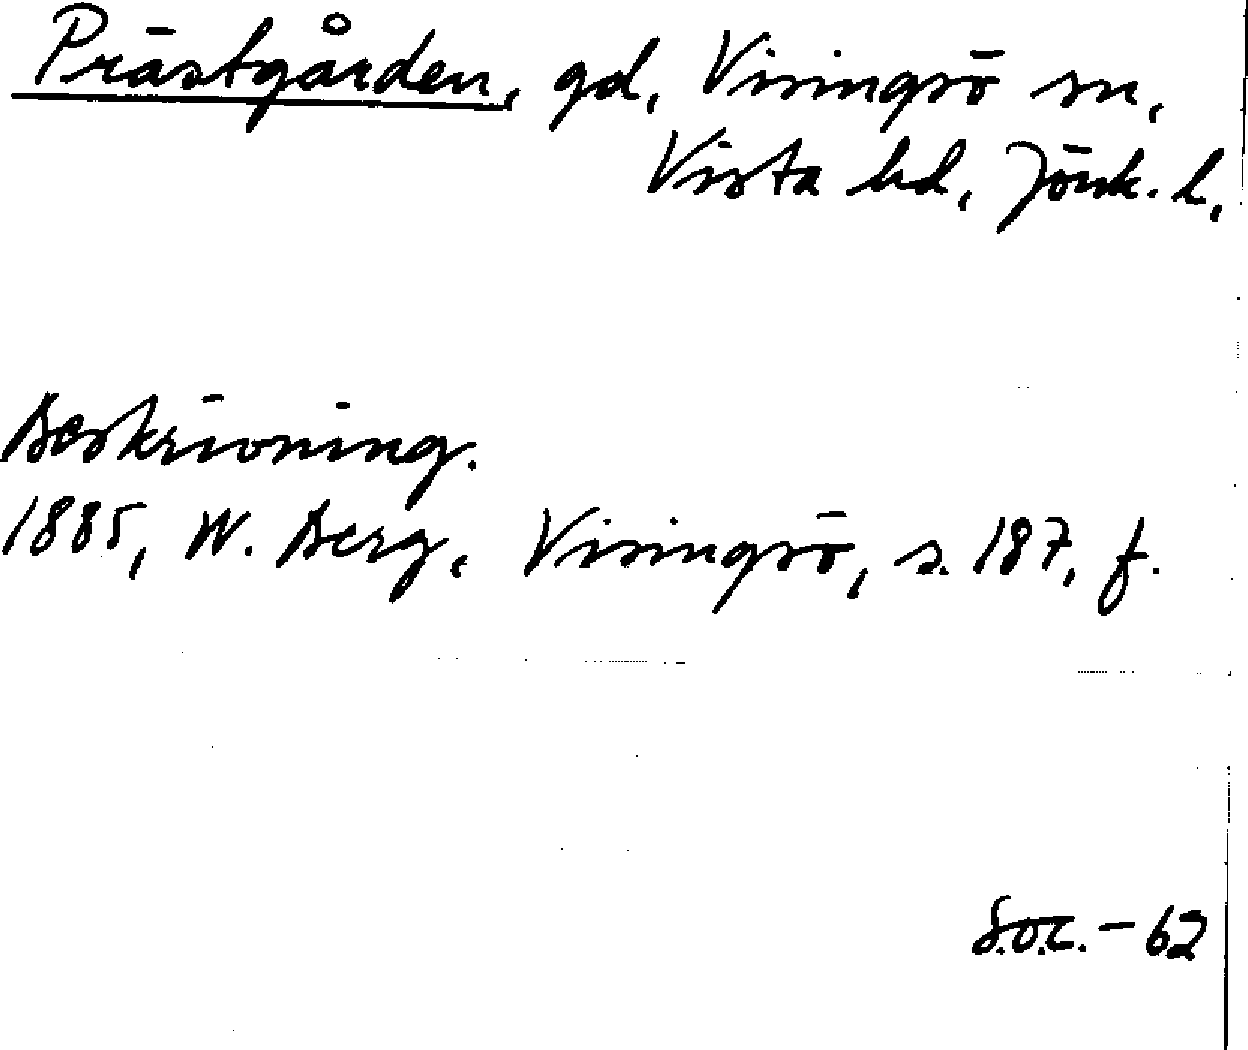 Prästgården, gd, Visingsö sn,
Vista hd, Jönk. l,
Beskrivning.
1885, W. Berg, Visingsö, s. 187, f.
S.O.C. - 62